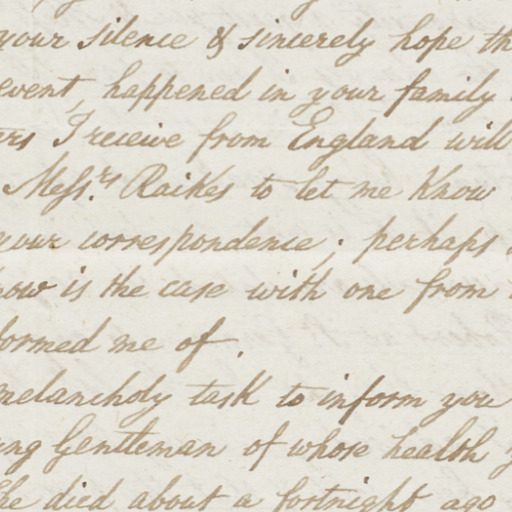 your silence & sincerely hope th
event, happened in your family
ers I receive from England will
Messrs. Raikes to let me know
your correspondence; perhaps
now is the case with one from
formed me of.
melancholy task to inform you
ung Gentleman of whose health
he died about a fortnight ago